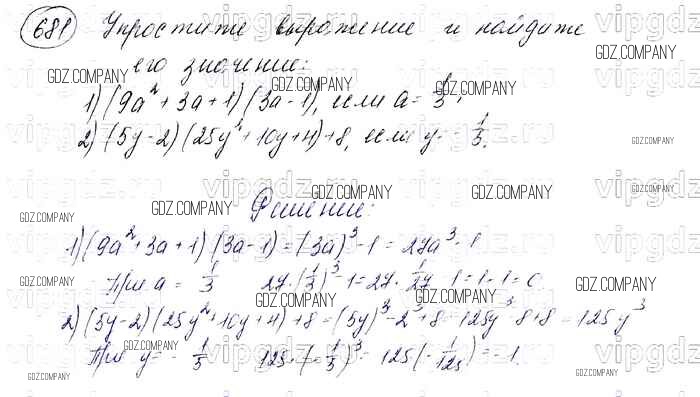 681 Упростите выражение и найдите
его значение:
1) (9a² + 3a + 1)(3a - 1), если a = 1/3;
2) (5y - 2)(25y² + 10y + 4) + 8, если y = - 1/5.
Решение:
1) (9a² + 3a + 1)(3a - 1) = (3a)³ - 1 = 27a³ - 1
При a = 1/3 27·(1/3)³ - 1 = 27· 1/27 - 1 = 1 - 1 = 0
2) (5y - 2)(25y² + 10y + 4) + 8 = (5y)³ - 2³ + 8 = 125y³ - 8 + 8 = 125y³
При y = - 1/5 125·(- 1/5)³ = 125(- 1/125) = -1.